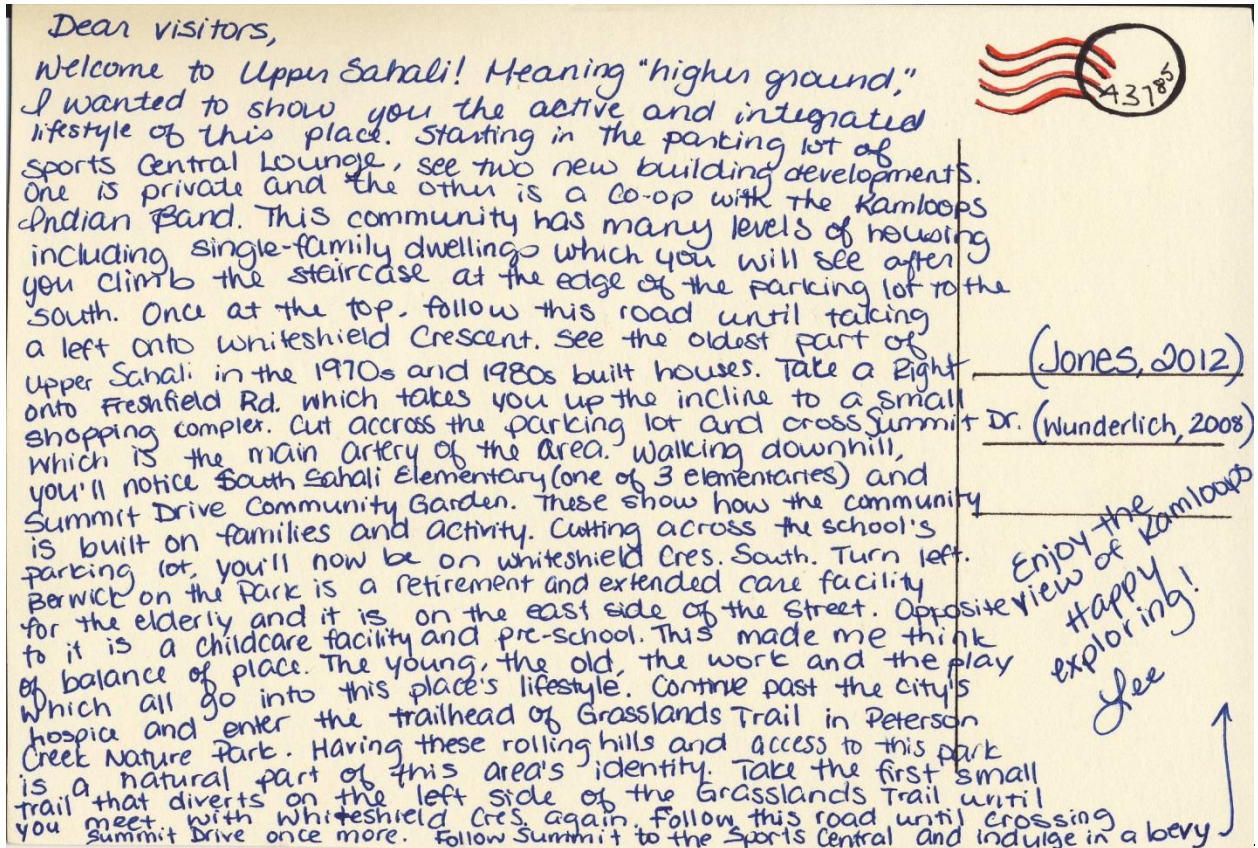 Dear visitors,
Welcome to Upper Sahali! Meaning "higher ground,"
I wanted to show you the active and integrated
lifestyle of this place. Starting in the parking lot of
Sports Central Lounge, see two new building developments.
One is private and the other is a co-op with the Kamloops
Indian Band. This community has many levels of housing
including single-family dwellings which you will see after
you climb the staircase at the edge of the parking lot to the
south. Once at the top, follow this road until taking
a left onto Whiteshield Crescent. See the oldest part of
Upper Sahali in the 1970s and 1980s built houses. Take a Right
onto Freshfield Rd. which takes you up the incline to a small
shopping complex. Cut accross the parking lot and cross Summit Dr.
which is the main artery of the area. Walking downhill,
you'll notice South Sahali Elementary (one of 3 elementaries) and
Summit Drive Community Garden. These show how the community
is built on families and activity. Cutting across the school's
parking lot, you'll now be on Whiteshield Cres. South. Turn left.
Berwick on the Park is a retirement and extended care facility
for the elderly and it is on the east side of the street. Opposite
to it is a childcare facility and pre-school. This made me think
of balance of place. The young, the old, the work and the play
which all go into this place's lifestyle. Continue past the city's
hospice and enter the trailhead of Grasslands Trail in Peterson
Creek Nature Park. Having these rolling hills and access to this park
is a natural part of this area's identity. Take the first small
trail that diverts on the left side of the Grasslands Trail until
you meet with Whiteshield Cres. again. Follow this road until crossing
Summit Drive once more. Follow Summit to the Sports Central and indulge in a bevy
43785
(Jones, 2012)
(Wunderlich, 2008)
Enjoy the
view of Kamloops
Happy
exploring!
Lee